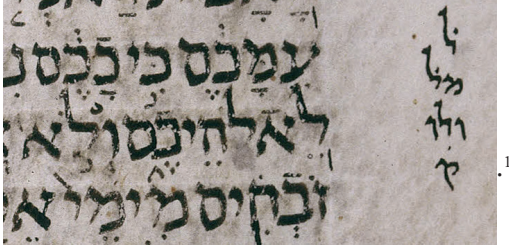 עִמָּכֶם כִּי כָכֶם
לֵאלֹהֵיכֶם וְלֹא
זֹבְחִים מִימֵי
ל
ומל
ולו
ק
.1